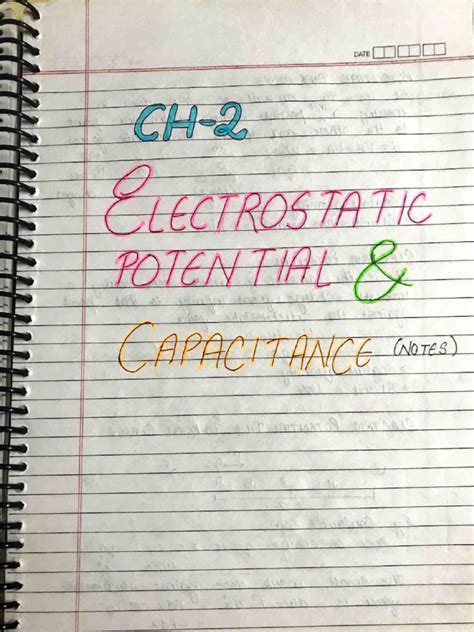 DATE
CH-2
ELECTROSTATIC
POTENTIAL &
CAPACITANCE (NOTES)